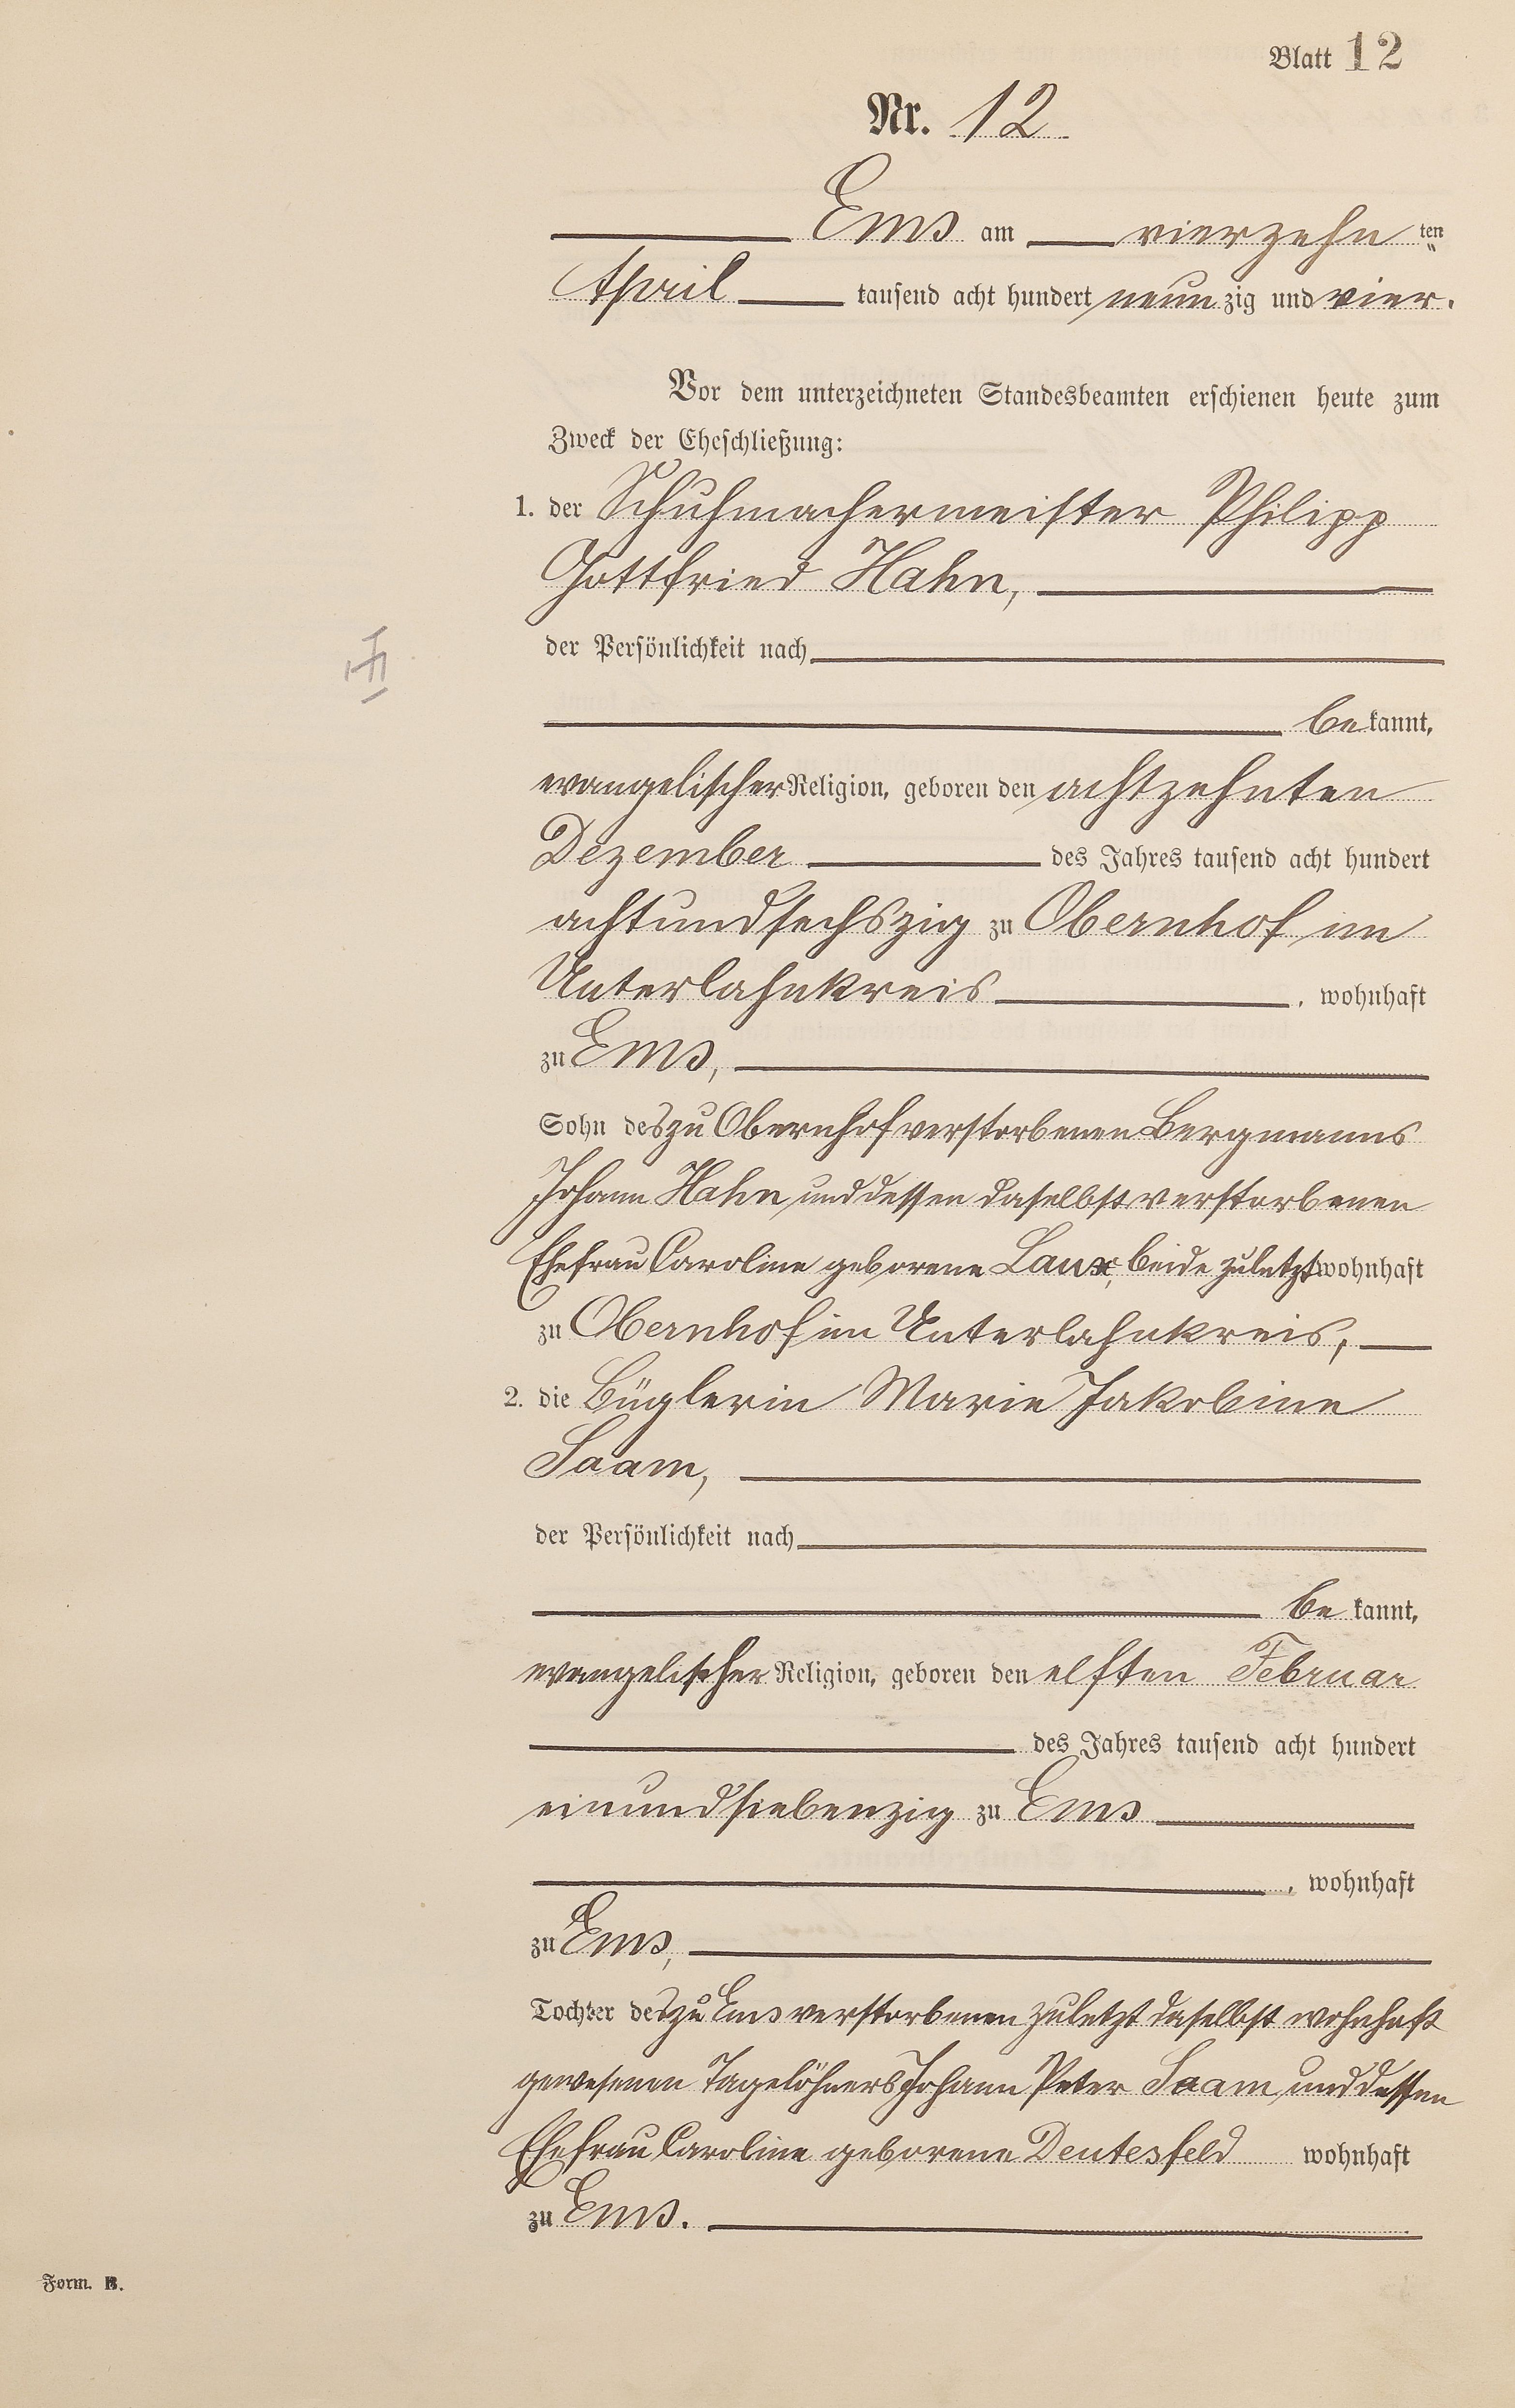 Blatt 12
Nr. 12
Ems am vierzehn ten
April tausend acht hundert neun zig und vier.
Vor dem unterzeichneten Standesbeamten erschienen heute zum
Zweck der Eheschließung:
1. der Schuhmachermeister Philipp
Gottfried Hahn,
der Persönlichkeit nach
be kannt,
evangelischer Religion, geboren den achtzehnten
Dezember des Jahres tausend acht hundert
achtundsechszig zu Obernhof im
Unterlahnkreis, wohnhaft
zu Ems,
Sohn des zu Obernhof verstorbenen Bergmanns
Johann Hahn und dessen daselbst verstorbenen
Ehefrau Caroline geborene Laux, beide zuletzt wohnhaft
zu Obernhof im Unterlahnkreis,
2. die Büglerin Marie Jakobine
Saam,
der Persönlichkeit nach
be kannt,
evangelischer Religion, geboren den elften Februar
des Jahres tausend acht hundert
einundsiebenzig zu Ems
, wohnhaft
zu Ems,
Tochter des zu Ems verstorbenen zuletzt daselbst wohnhaft
gewesenen Tagelöhners Johann Peter Saam und dessen
Ehefrau Caroline geborene Deutesfeld wohnhaft
zu Ems.
Form. B.